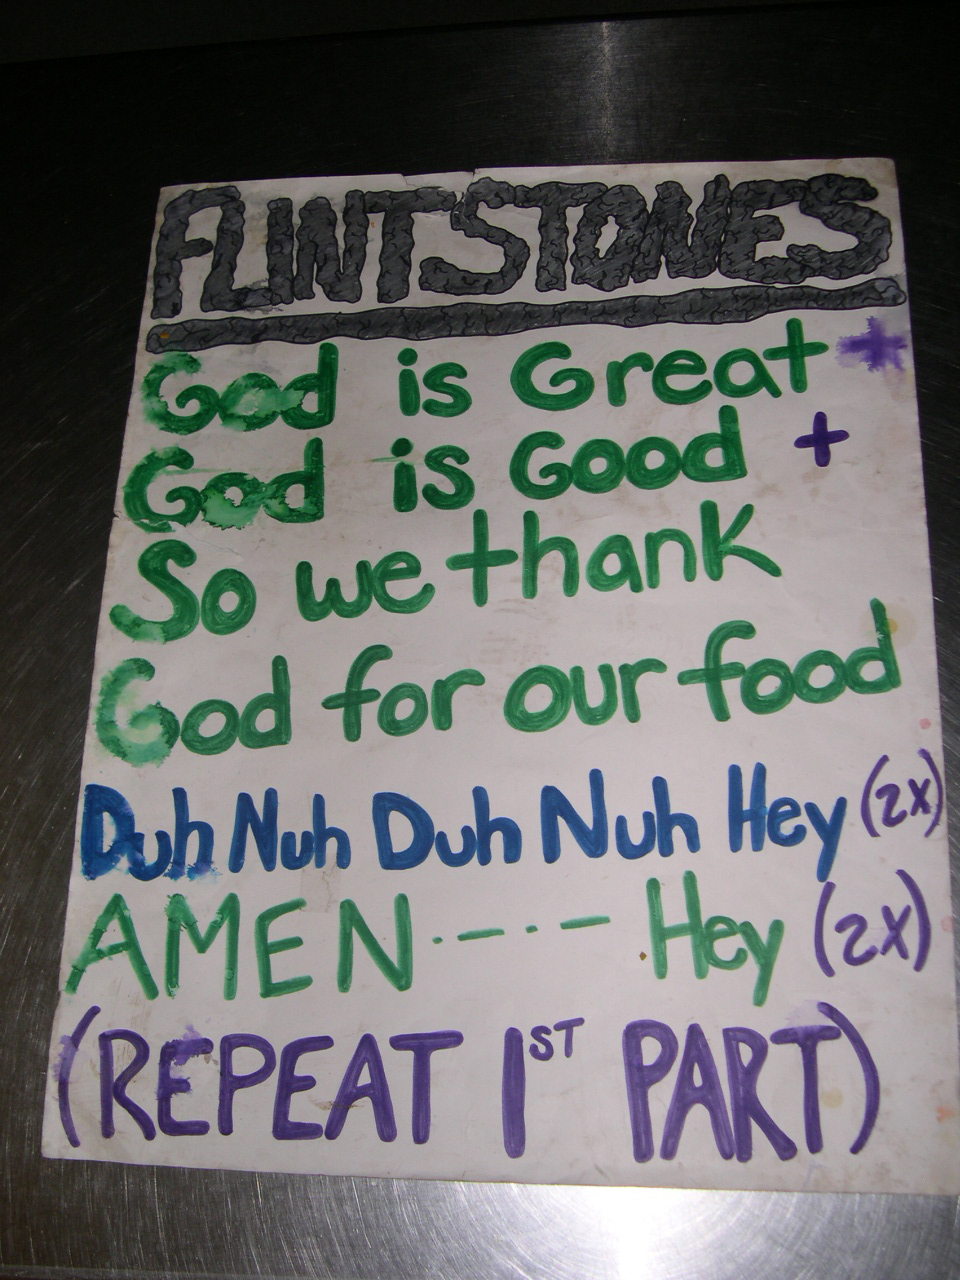 FLINTSTONES
God is Great +
God is Good +
So we thank
God for our food
Duh Nuh Duh Nuh Hey (2x)
AMEN ·-·- Hey (2x)
(REPEAT 1ST PART)